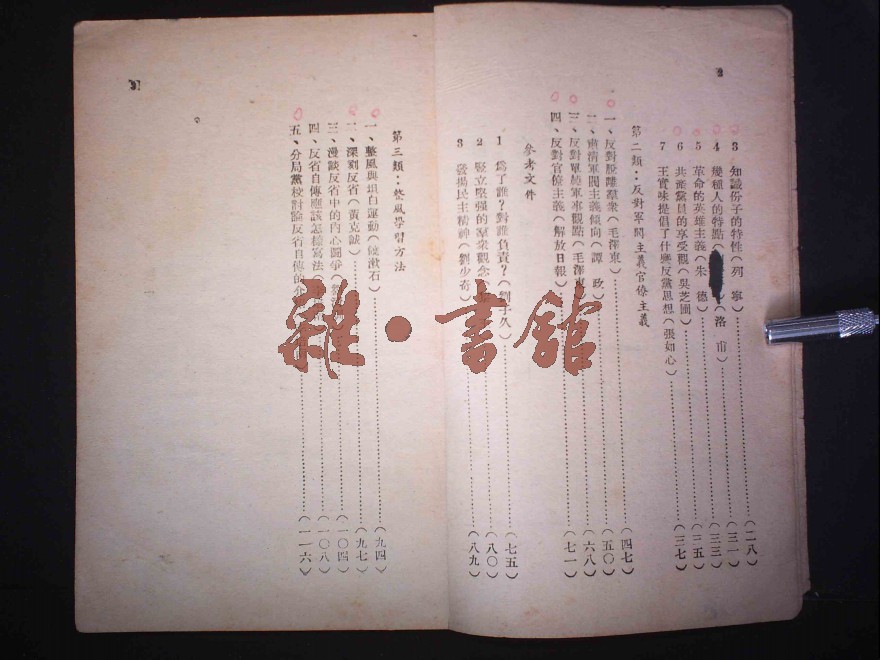 2
3 知識份子的特性(列寧)……(二八)
4 幾種人的特點 洛甫)……(三一)
5 革命的英雄主義(朱德)……(三三)
6 共產黨員的享受觀(吳芝圃)……(三五)
7 王實味提倡了什麽反黨思想(張如心)……(三七)
第二類:反對軍閥主義官僚主義
一、反對脫離羣衆(毛澤東)……(四七)
二、肅清軍閥主義傾向(譚政)……(五〇)
三、反對單純軍事觀點(毛澤東……(六八)
四、反對官僚主義(解放日報)……(七一)
參考文件
1 爲了誰?對誰負責?(劉子久)……(七五)
2 竪立堅强的羣衆觀念……(八〇)
3 發揚民主精神(劉少奇)……(八九)
3
第三類:整風學習方法
一、整風與坦白運動(饒漱石)……(九四)
二、深刻反省(黃克誠)……(九七)
三、漫談反省中的內心鬭爭……(一〇四)
四、反省自傳應該怎樣寫法……(一〇八)
五、分局黨校討論反省自傳的……(一一六)
雜·書館